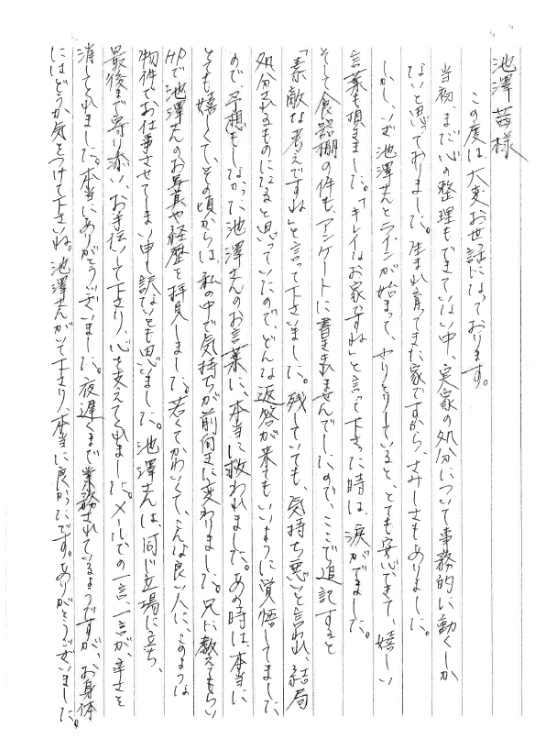 池澤 茜様
この度は大変お世話になっております。
当初、まだ心の整理もできていない中、実家の処分について事務的に動くしか
ないと思っておりました。生まれ育ってきた家ですから、さみしさもありました。
しかし、いざ池澤さんとラインが始まって、やりとりしていると、とても安心できて、嬉しい
言葉も頂きました。「キレイなお家ですね」と言って下さった時は、涙がでました。
そして食器棚の件も、アンケートに書きませんでしたので、ここで追記すると
「素敵な考えですね」と言って下さいました。残していても、気持ち悪いと言われ、結局
処分されるものになると思っていたので、どんな返答が来てもいいように覚悟してました
ので、予想もしなかった池澤さんのお言葉に、本当に救われました。あの時は、本当に
とても嬉しくて、その頃からは、私の中で気持ちが前向きに変わりました。兄に教えてもらい
HPで池澤さんのお写真や経歴を拝見しました。若くてかわいくて、こんな良い人に、このような
物件でお仕事させてしまい申し訳ないとも思いました。池澤さんは、同じ立場に立ち、
最後まで寄り添い、お手伝いして下さり、心を支えてくれました。メールでの一言一言が、辛さを
消してくれました。本当にありがとうございました。夜遅くまで業務されているようですが、お身体
にはどうか気をつけて下さいね。池澤さんがいて下さり、本当に良かったです。ありがとうございました。